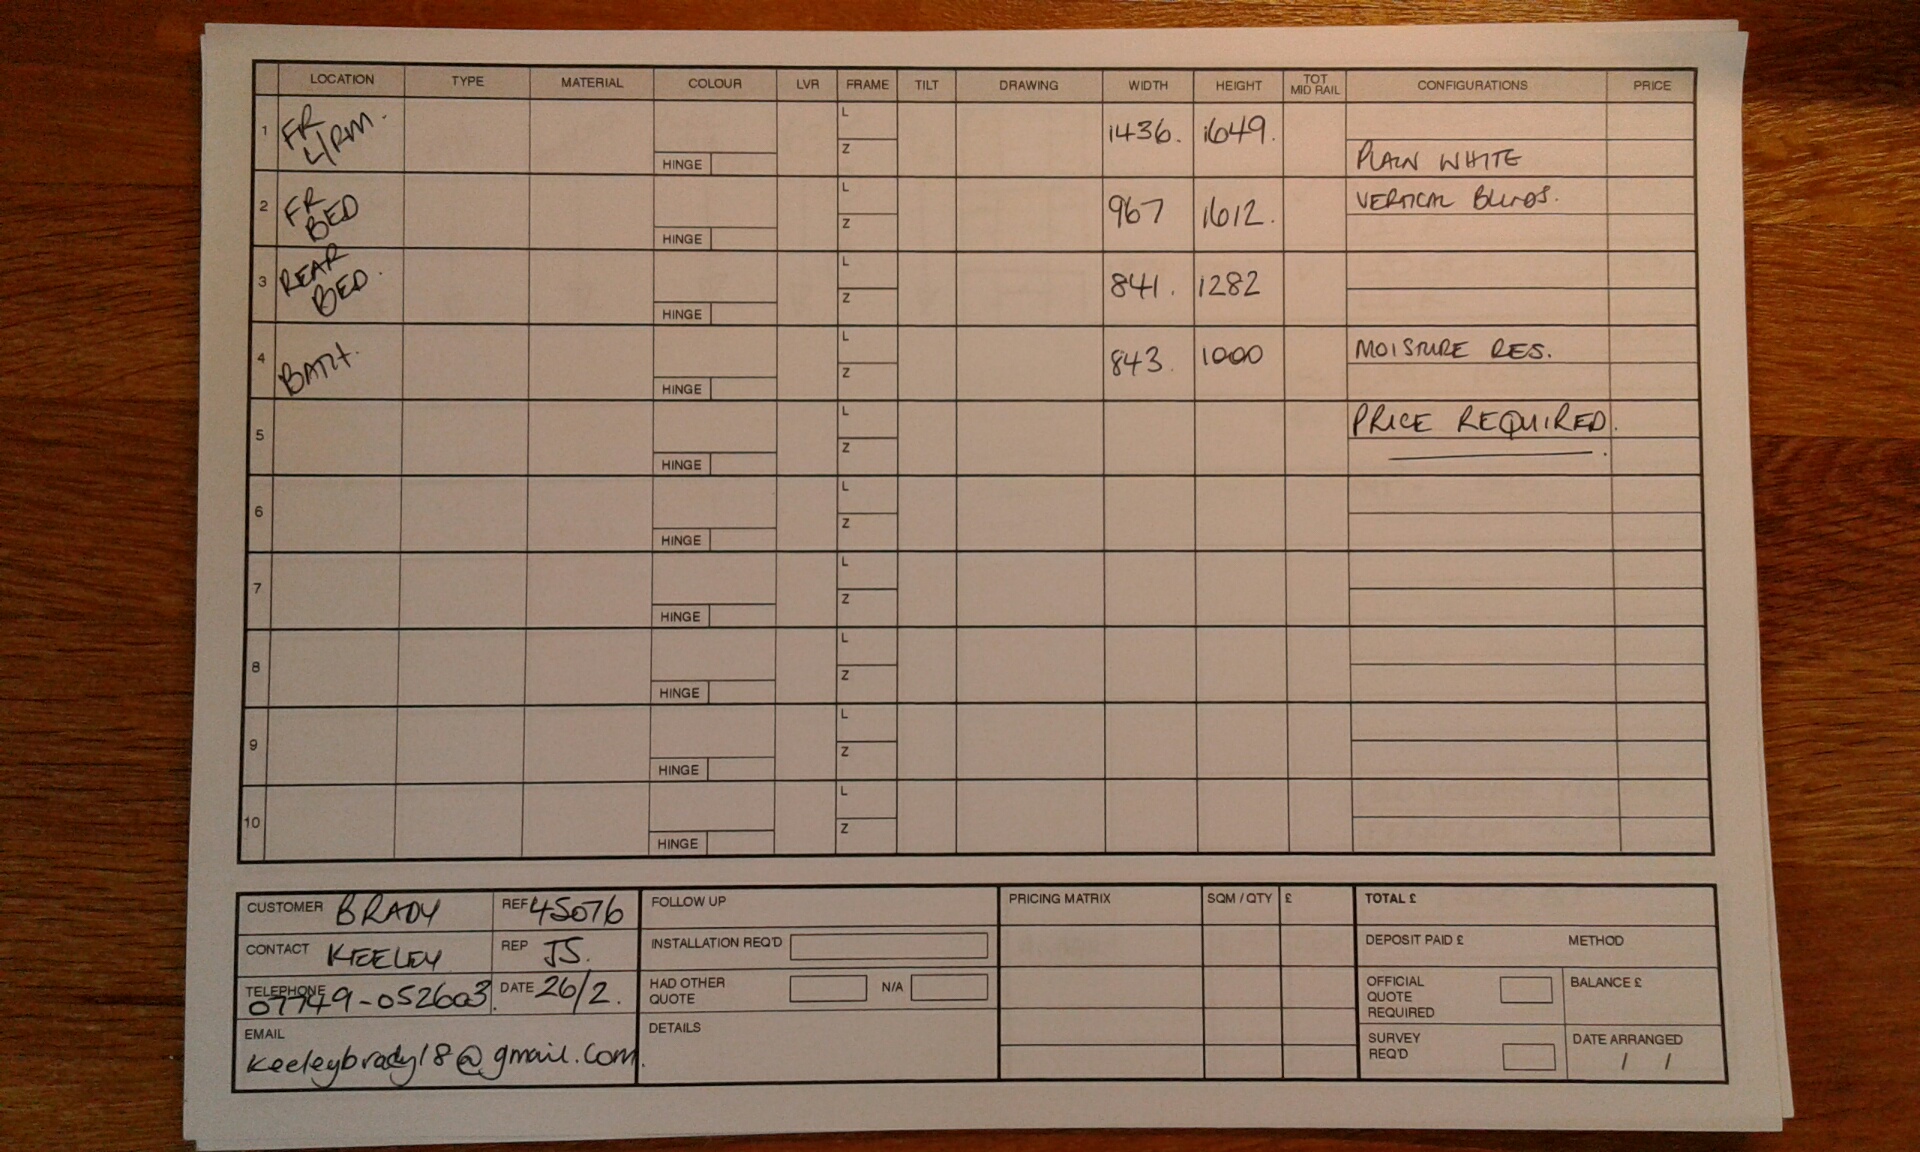 LOCATION TYPE MATERIAL COLOUR LVR FRAME TILT DRAWING WIDTH HEIGHT TOT MID RAIL CONFIGURATIONS PRICE
1 FR L/RM. HINGE L Z 1436. 1649. PLAIN WHITE
2 FR BED HINGE L Z 967 1612. VERTICAL BLINDS.
3 REAR BED. HINGE L Z 841. 1282
4 BATH. HINGE L Z 843. 1000 MOISTURE RES.
5 HINGE L Z PRICE REQUIRED.
6 HINGE L Z
7 HINGE L Z
8 HINGE L Z
9 HINGE L Z
10 HINGE L Z
CUSTOMER BRADY REF 45076
CONTACT KEELEY REP JS.
TELEPHONE 07749-052603. DATE 26/2.
EMAIL
keeleybrady18@gmail.com.
FOLLOW UP
INSTALLATION REQ'D
HAD OTHER QUOTE N/A
DETAILS
PRICING MATRIX SQM / QTY £
TOTAL £
DEPOSIT PAID £ METHOD
OFFICIAL QUOTE REQUIRED BALANCE £
SURVEY REQ'D DATE ARRANGED / /